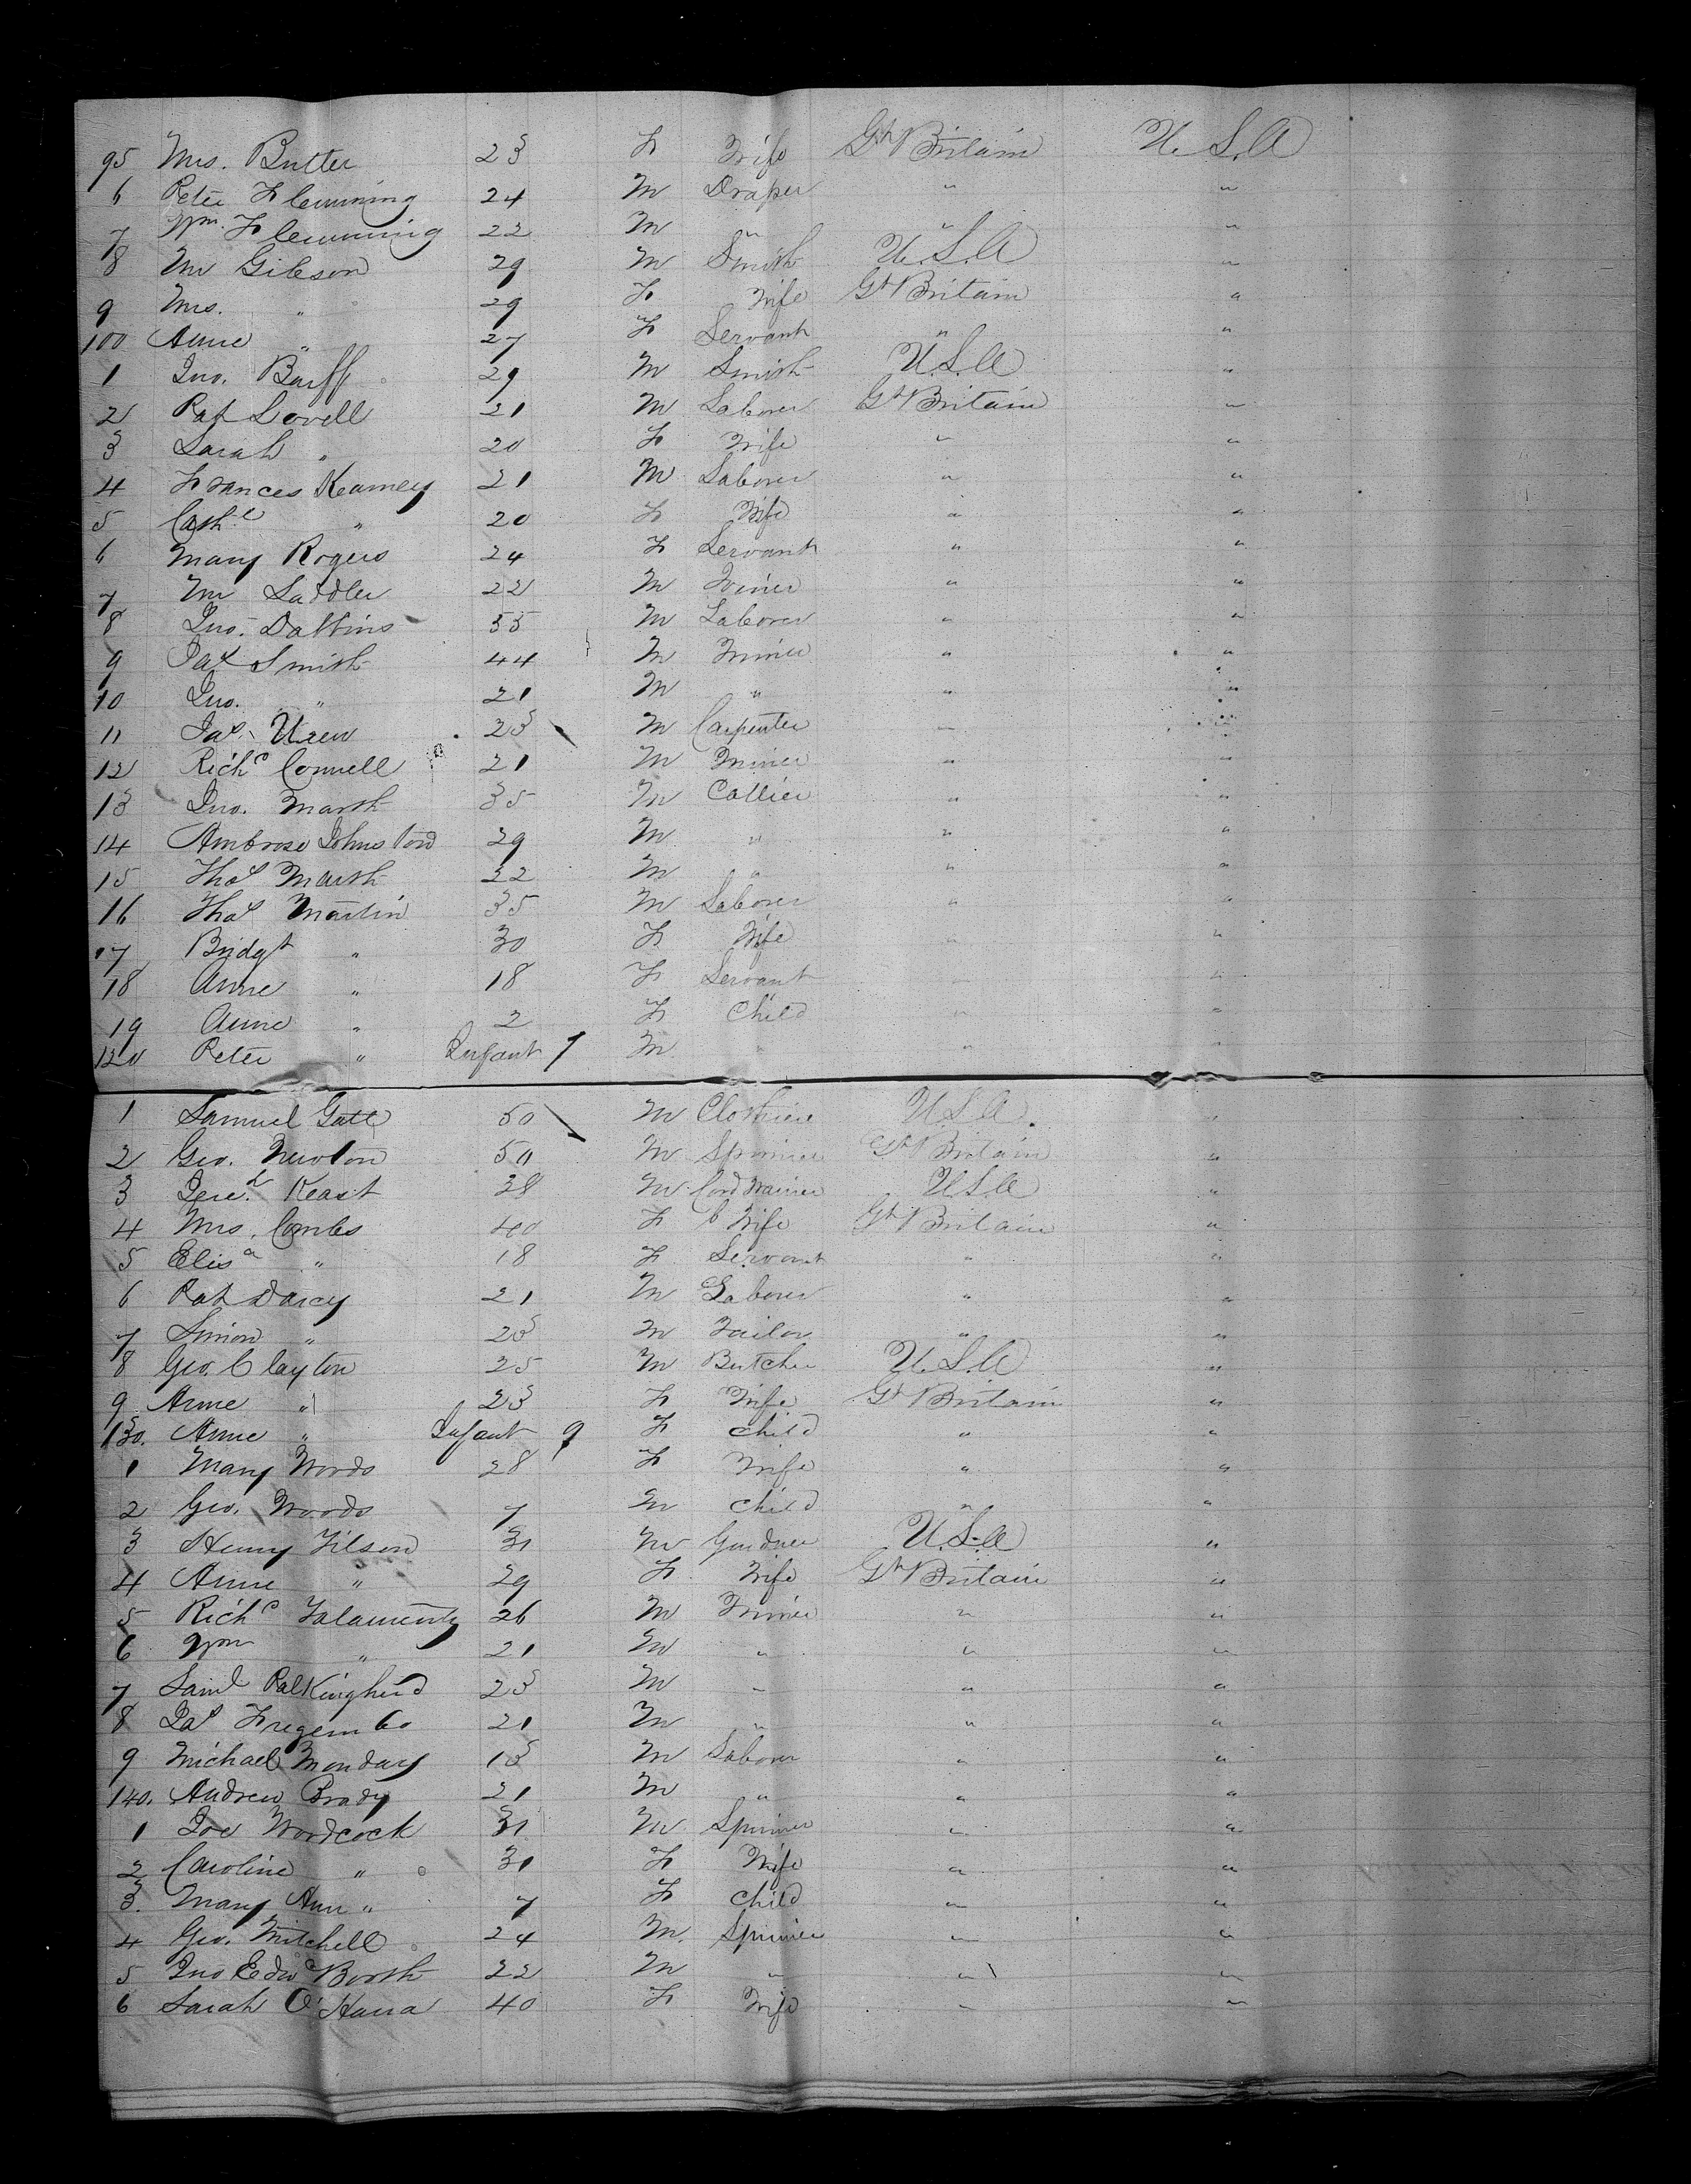 95 Mrs. Butter 23 F Wife Gt Britain U.S.A
6 Peter Flemming 24 M Draper " "
7 Wm. Flemming 22 M " " "
8 Mr Gibson 29 M Smith U.S.A "
9 Mrs. " 29 F Wife Gt Britain "
100 Anne " 27 F Servant " "
1 Jno. Barff 29 M Smith U.S.A "
2 Pat Lovell 21 M Laborer Gt Britain "
3 Sarah " 20 F Wife " "
4 Frances Kearney 21 M Laborer " "
5 Cathe " 20 F Wife " "
6 Mary Rogers 24 F Servant " "
7 Wm Saddler 22 M Joiner " "
8 Jno. Dakins 35 M Laborer " "
9 Jas Smith 44 M Miner " "
10 Jno. " 21 M " " "
11 Jas. Uren 23 M Carpenter " "
12 Richd Connell 21 M Miner " "
13 Jno. Marsh 35 M Collier " "
14 Ambrose Johnston 29 M " " "
15 Thos Marsh 22 M " " "
16 Thos Martin 35 M Laborer " "
17 Bridgt " 30 F Wife " "
18 Anne " 18 F Servant " "
19 Anne " 2 F Child " "
120 Peter " Infant 7 M " " "
1 Samuel 50 M Clothier U.S.A "
2 Geo. Newton 50 M Spinner Gt Britain "
3 Jereh Keast 38 M Cordwainer U.S.A "
4 Mrs. Combs 40 F Wife Gt Britain "
5 Elisa " 18 F Servant " "
6 Pat Darcy 21 M Laborer " "
7 Simon " 23 M Tailor " "
8 Geo. Clayton 25 M Butcher U.S.A "
9 Anne " 23 F Wife Gt Britain "
130. Anne " Infant 9 F Child " "
1 Mary Woods 28 F Wife " "
2 Geo. Woods 7 M Child " "
3 Henry Tilson 31 M Gardner U.S.A "
4 Anne " 29 F Wife Gt Britain "
5 Richd 26 M Miner " "
6 Wm " 21 M " " "
7 Saml 23 M " " "
8 Jas Tregembo 21 M " " "
9 Michael Monday 13 M Laborer " "
140. Andrew Brady 21 M " " "
1 Joe Woodcock 31 M Spinner " "
2 Caroline " 31 F Wife " "
3. Mary Ann " 7 F Child " "
4 Geo. Mitchell 24 M. Spinner " "
5 Jno Edwd Booth 22 M " " "
6 Sarah O'Hara 40 F Wife " "